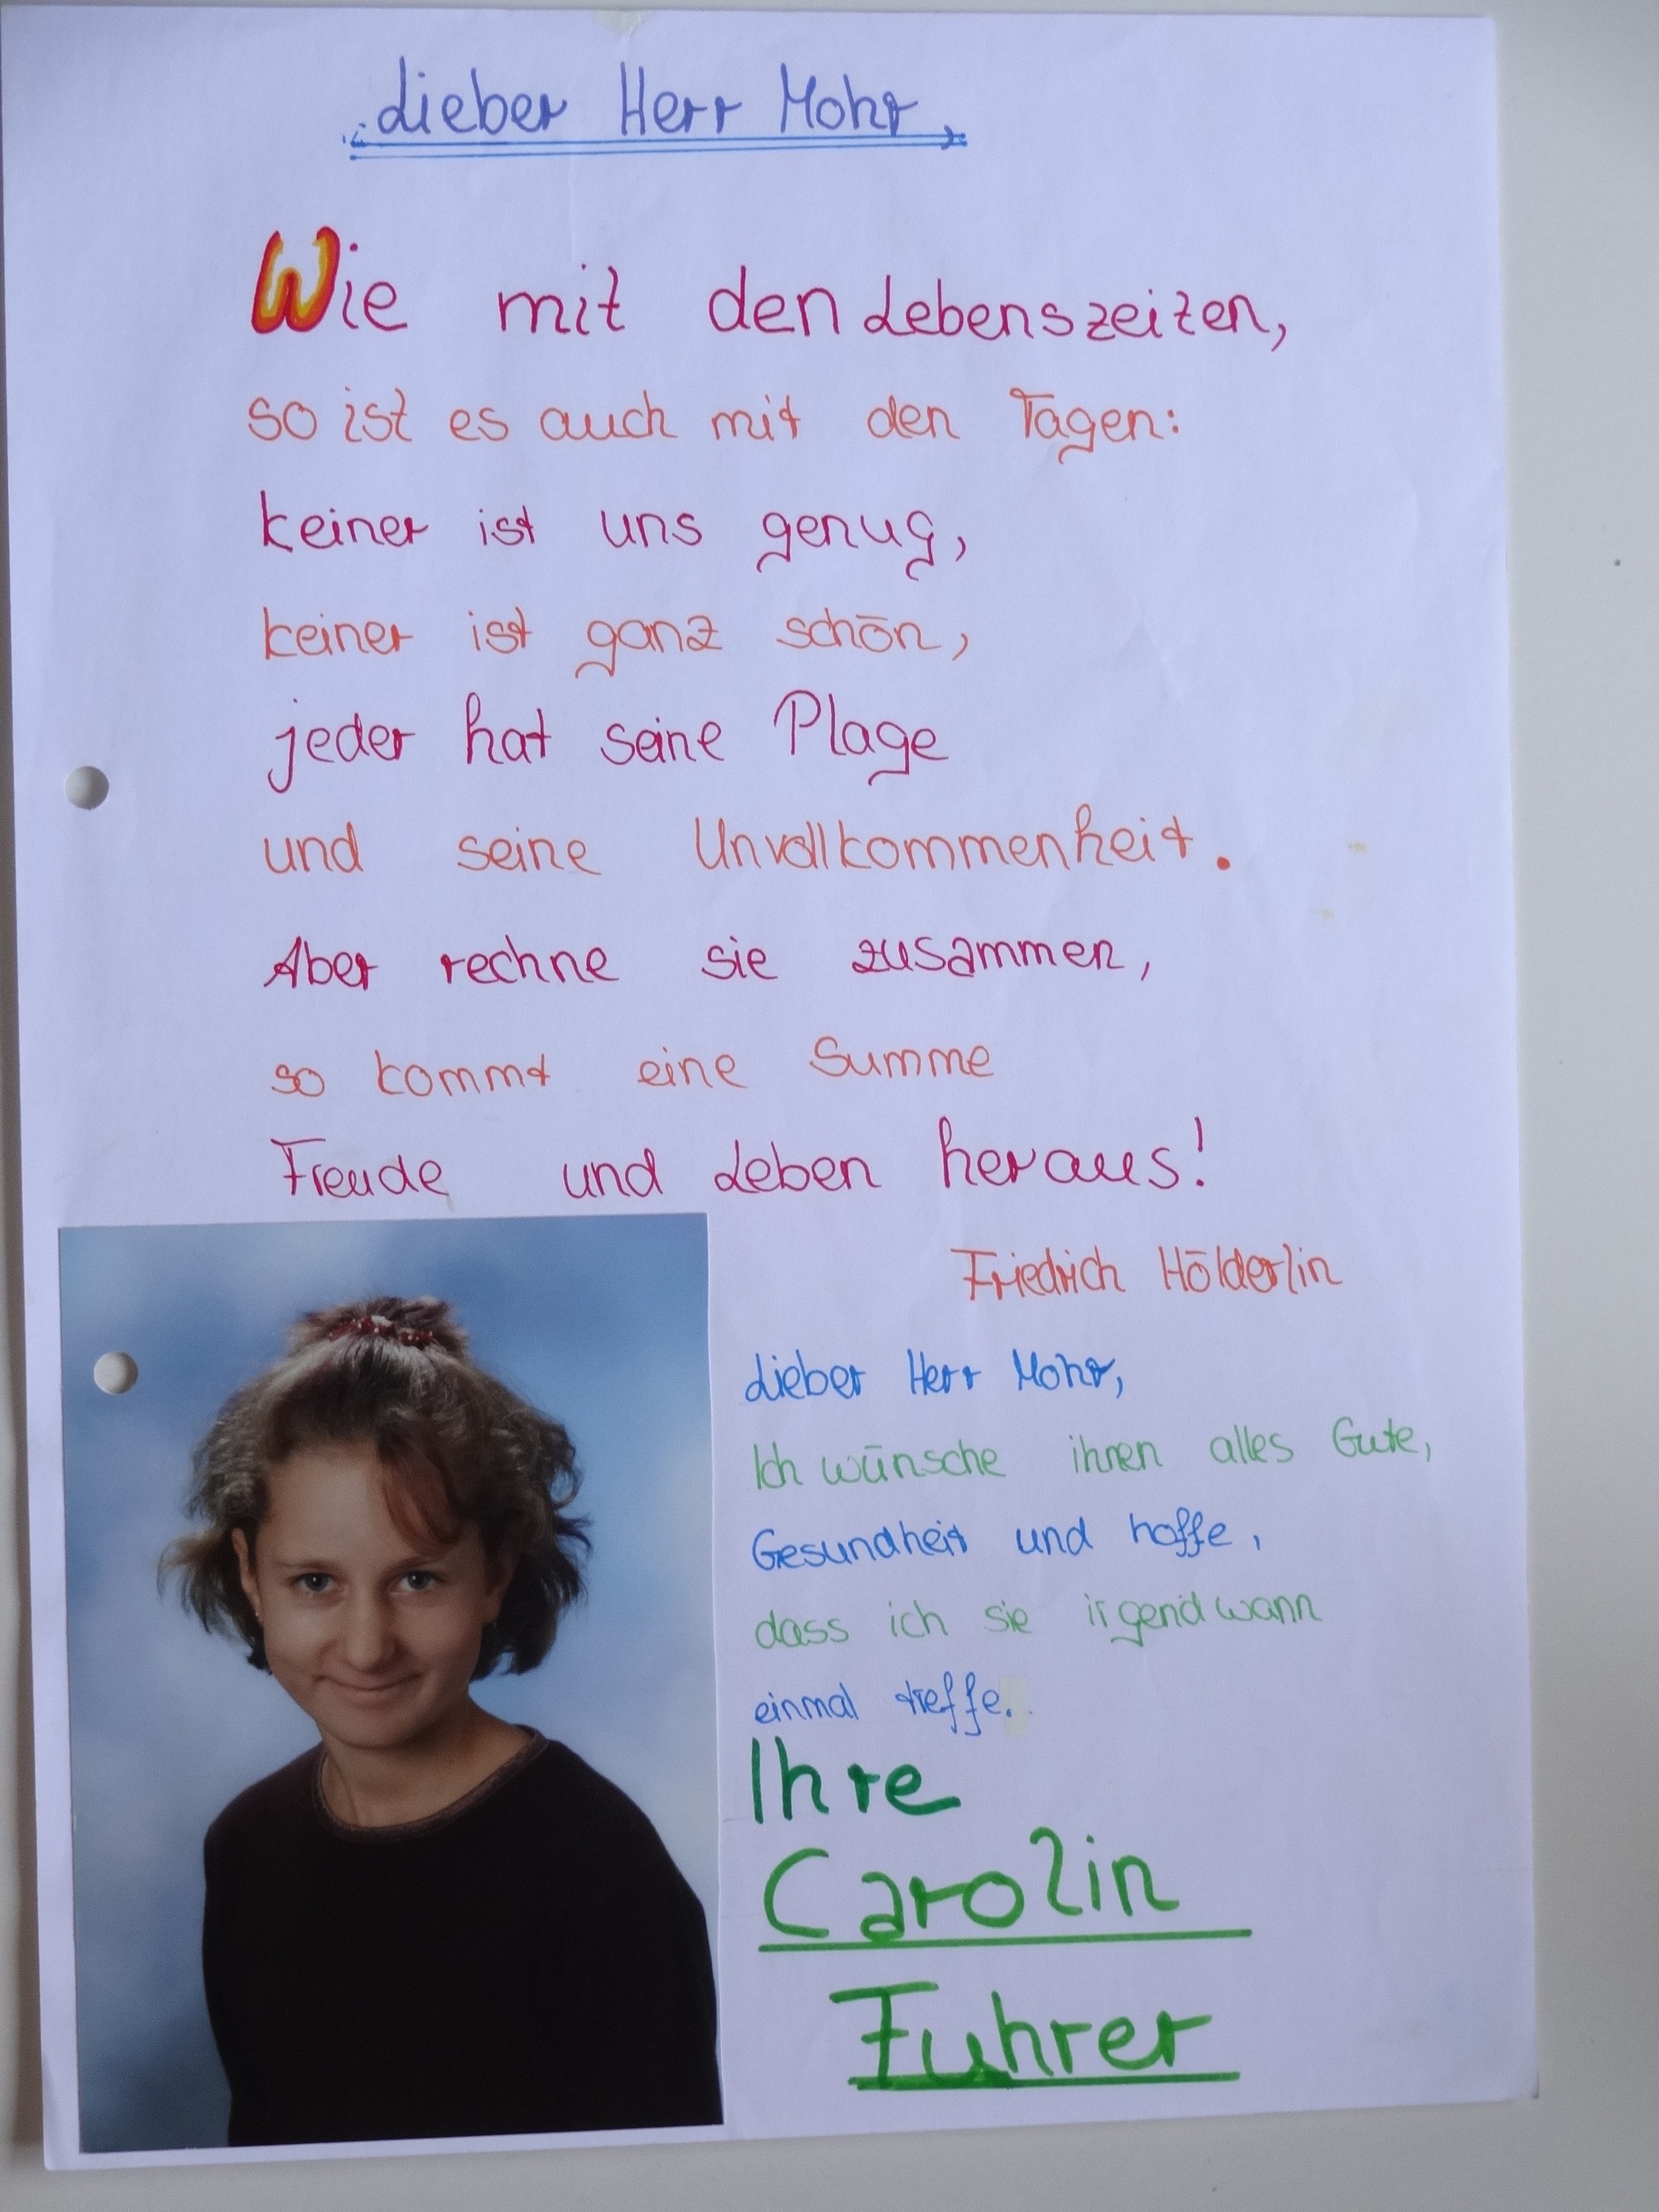 Lieber Herr Mohr,
Wie mit den Lebenszeiten,
so ist es auch mit den Tagen:
keiner ist uns genug,
keiner ist ganz schön,
jeder hat seine Plage
und seine Unvollkommenheit.
Aber rechne sie zusammen,
so kommt eine Summe
Freude und Leben heraus!
Friedrich Hölderlin
Lieber Herr Mohr,
Ich wünsche ihnen alles Gute,
Gesundheit und hoffe,
dass ich sie irgendwann
einmal treffe.
Ihre
Carolin
Fuhrer